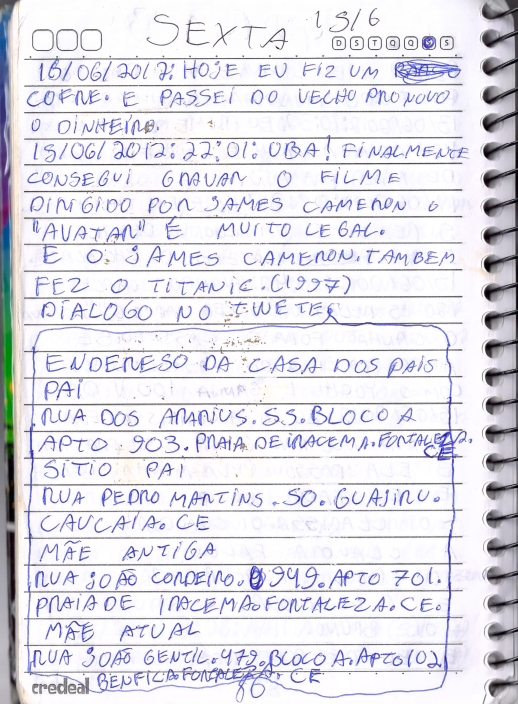 SEXTA 15/6
D S T Q Q S S
15/06/2012: HOJE EU FIZ UM
COFRE. E PASSEI DO VELHO PRO NOVO
O DINHEIRO.
15/06/2012: 22:01: OBA! FINALMENTE
CONSEGUI GRAVAR O FILME
DIRIGIDO POR JAMES CAMERON O
"AVATAR" É MUITO LEGAL.
E O JAMES CAMERON. TAMBEM
FEZ O TITANIC. (1997)
DIALOGO NO TWETER
ENDERESO DA CASA DOS PAIS
PAI
RUA DOS ARARIUS. S.S. BLOCO A
APTO 903. PRAIA DE IRACEMA. FORTALEZA.
CE
SITIO PAI
RUA PEDRO MARTINS. SO. GUAJIRU.
CAUCAIA. CE
MÃE ANTIGA
RUA JOÃO CORDEIRO. 949. APTO 701.
PRAIA DE IRACEMA. FORTALEZA. CE.
MÃE ATUAL
RUA JOÃO GENTIL. 479. BLOCO A. APTO 102
BENFICA. FORTALEZA. CE
credeal